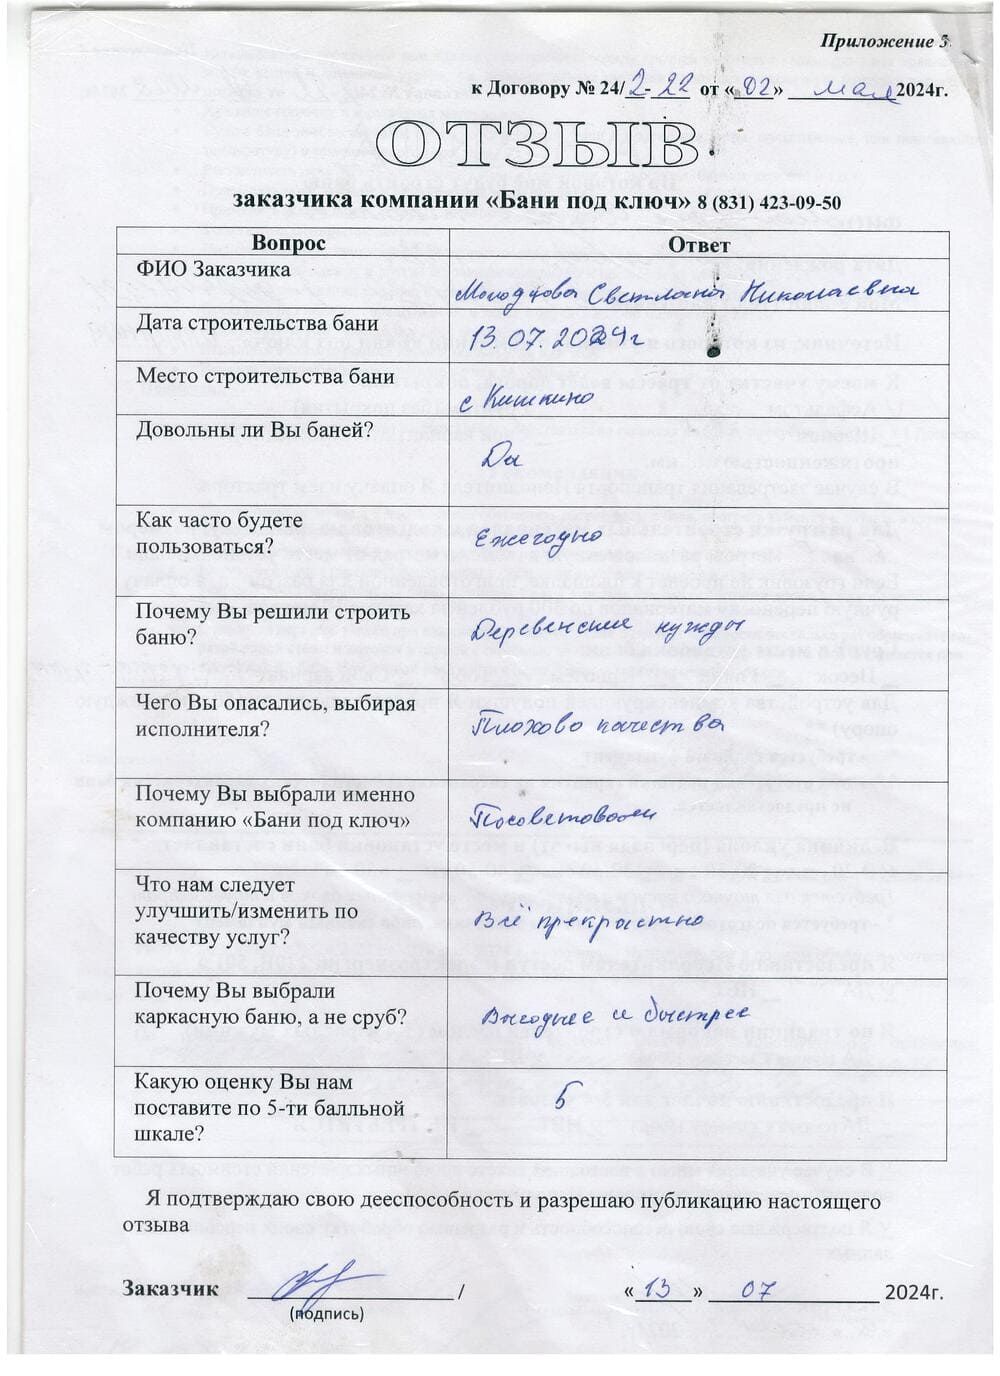 Приложение 5
к Договору № 24/2-22 от «02» мая 2024г.
ОТЗЫВ
заказчика компании «Бани под ключ» 8 (831) 423-09-50
Вопрос Ответ
ФИО Заказчика Светлана Николаевна
Дата строительства бани 13.07.2024г
Место строительства бани с Кишкино
Довольны ли Вы баней? Да
Как часто будете
пользоваться? Ежегодно
Почему Вы решили строить
баню? Деревенские нужды
Чего Вы опасались, выбирая
исполнителя? Плохово качества
Почему Вы выбрали именно
компанию «Бани под ключ» Посоветовали
Что нам следует
улучшить/изменить по
качеству услуг? Всё прекрастно
Почему Вы выбрали
каркасную баню, а не сруб? Выгоднее и быстрее
Какую оценку Вы нам
поставите по 5-ти балльной
шкале? 5
Я подтверждаю свою дееспособность и разрешаю публикацию настоящего
отзыва
Заказчик / «13» 07 2024г.
(подпись)